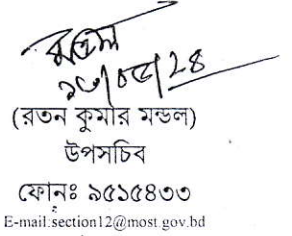 (রতন কুমার মন্ডল)
উপসচিব
ফোনঃ ৯৫১৫৪৩৩
E-mail:section12@most.gov.bd